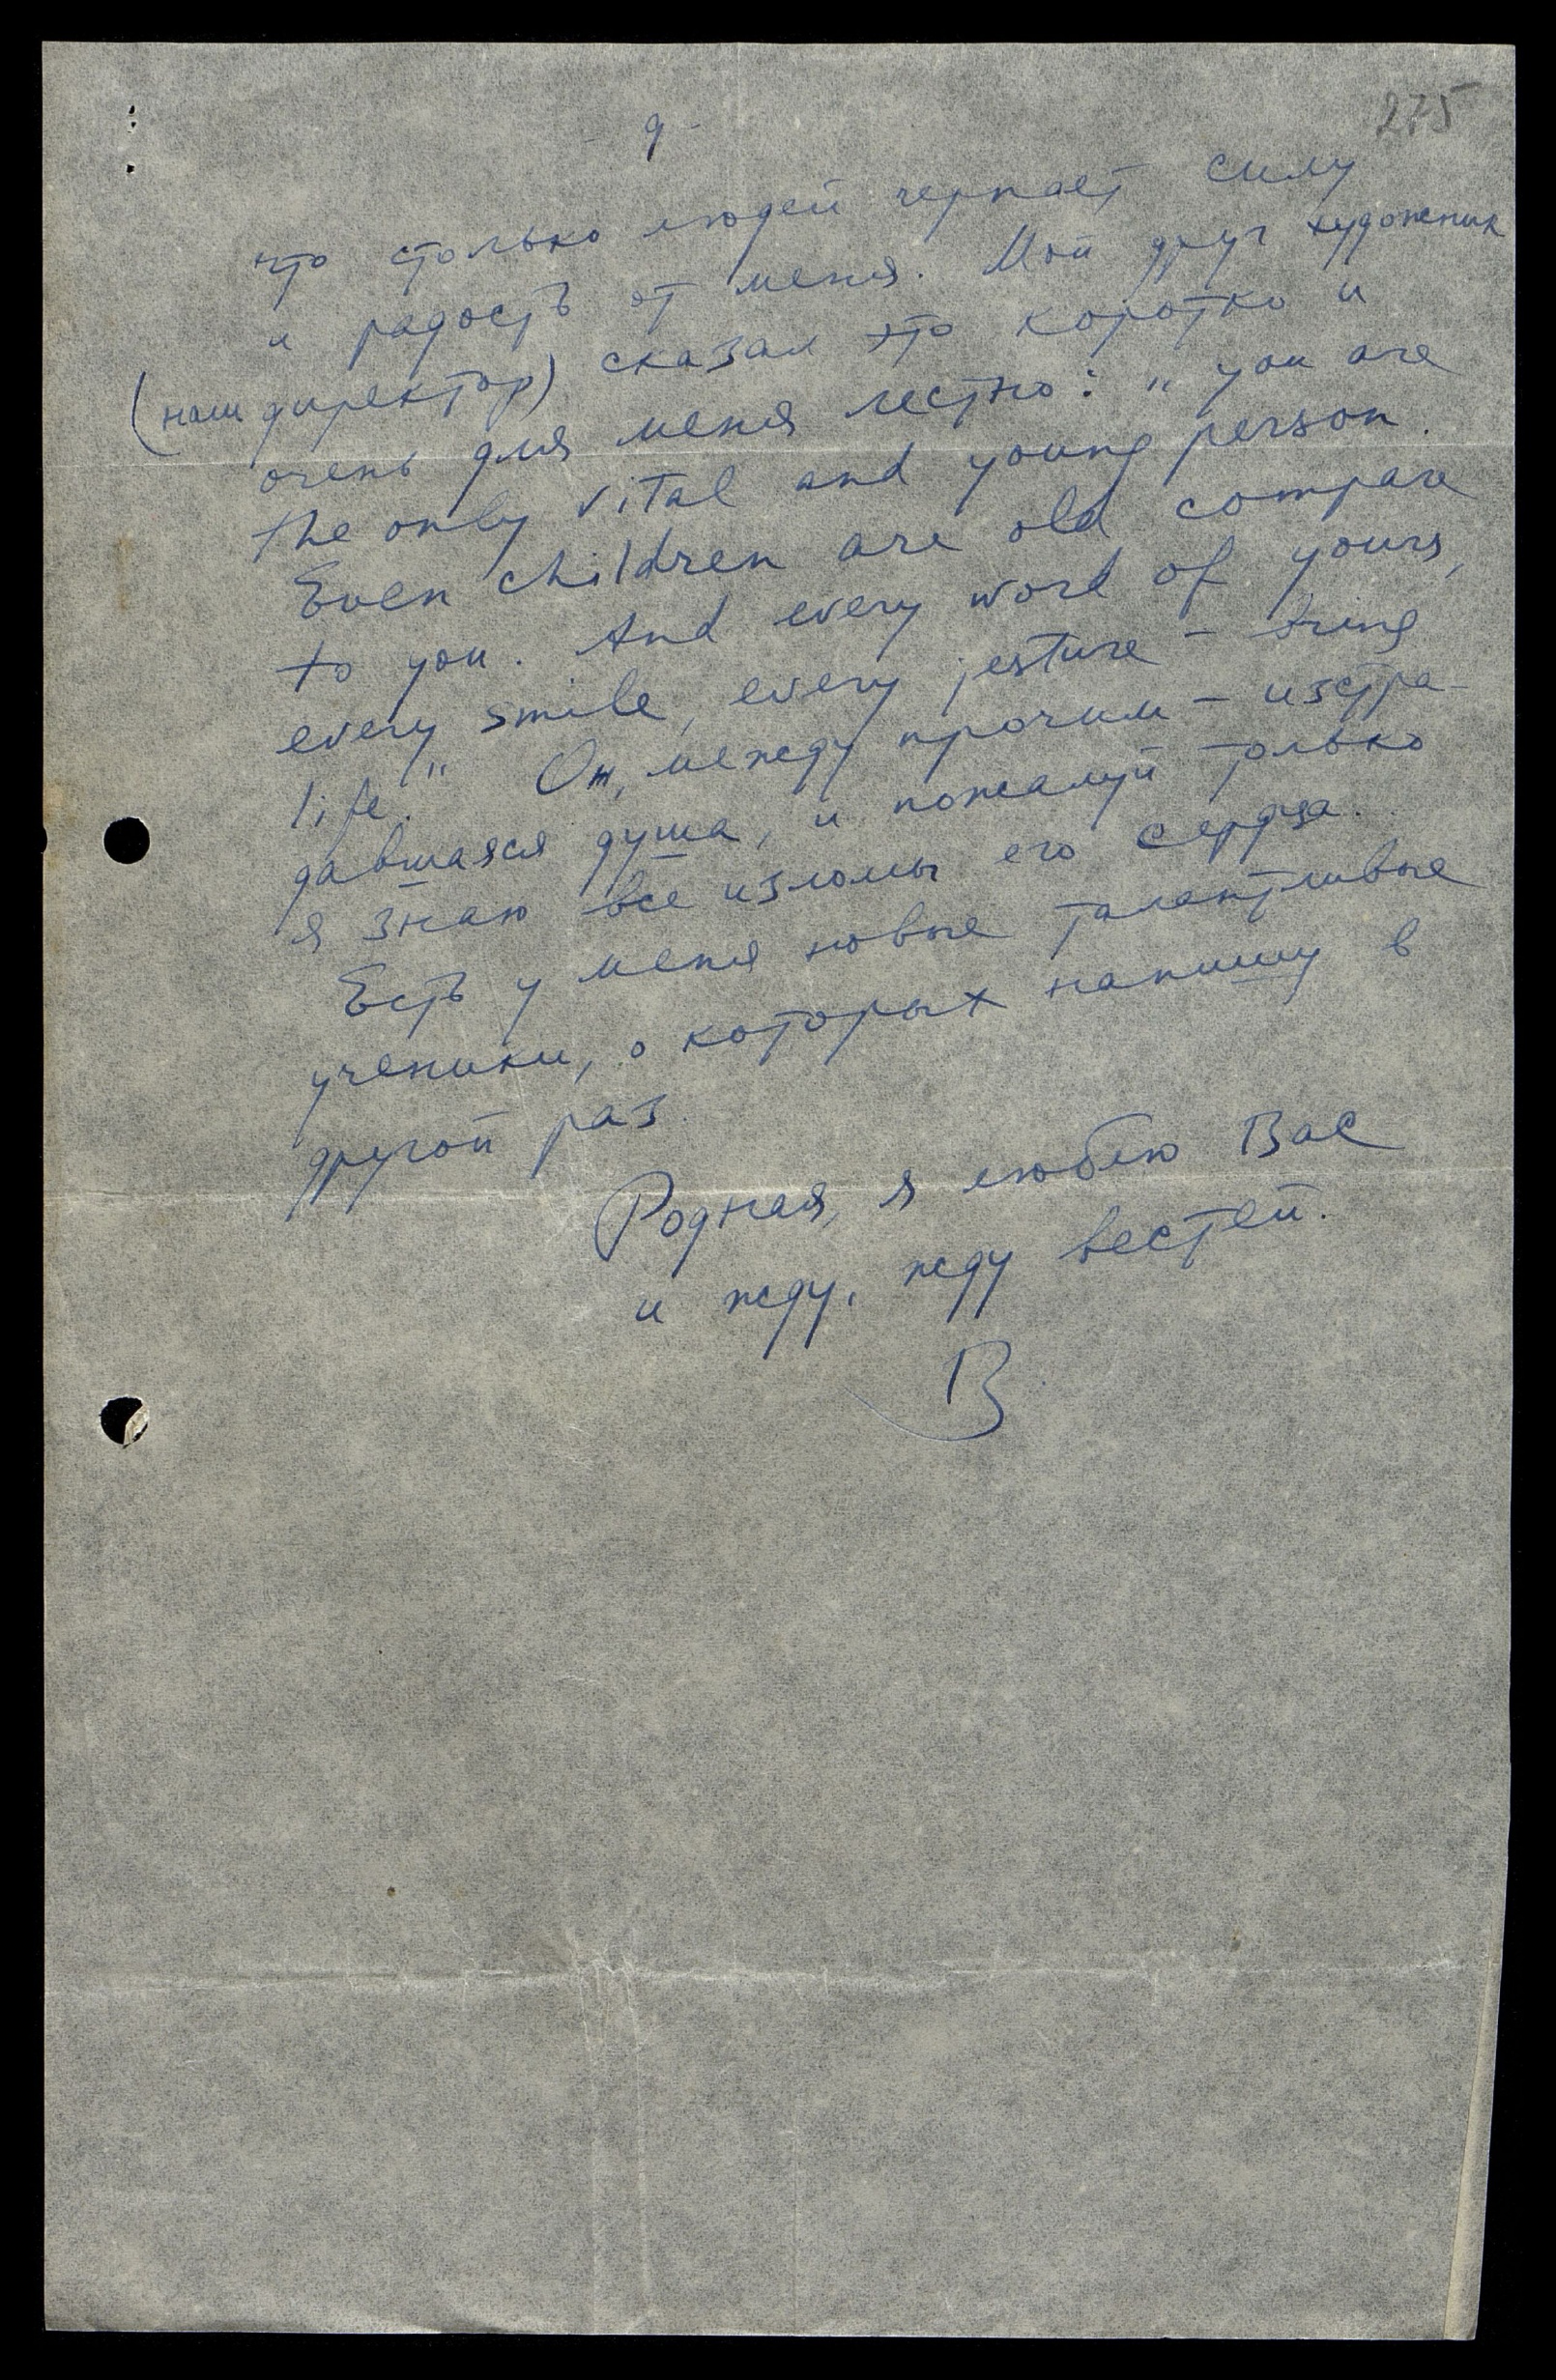 275
- 9 -
что столько людей черпает силу
и радость от меня. Мой друг художник
(наш директор) сказал это коротко и
очень для меня лестно: "you are
the only vital and young person.
Even children are old compare
to you. And every word of yours,
every smile, every jesture - bring
life." Он, между прочим - исстра-
давшаяся душа, и пожалуй только
я знаю все изломы его сердца.
Есть у меня новые талантливые
ученики, о которых напишу в
другой раз.
Родная, я люблю Вас
и жду, жду вестей.
В.